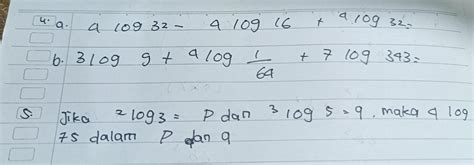 4. a. 4 log 32 - 4 log 16 + ⁴log 32 =
b. 3 log 9 + 4 log 1/64 + 7 log 343 =
5. Jika ²log 3 = P dan ³log 5 = q. maka 4 log
75 dalam P dan q